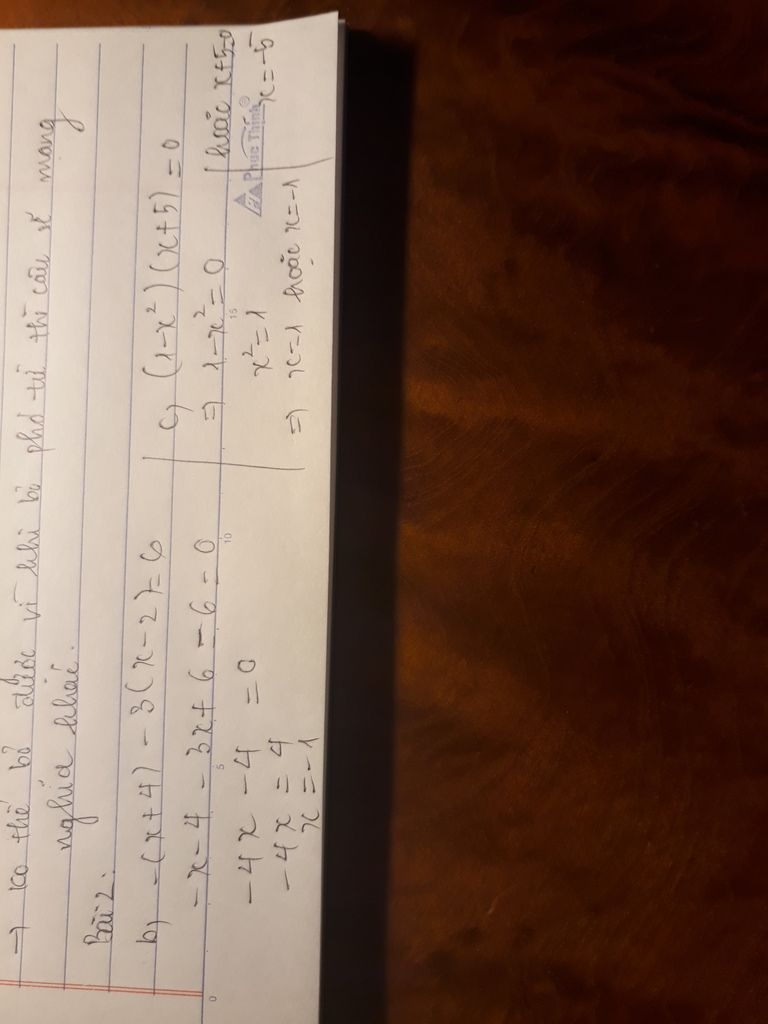 → ko thể bỏ được vì khi bỏ phó từ thì câu sẽ mang
nghĩa khác.
Bài 2.
b, -(x+4) - 3(x-2) = 6
-x - 4 - 3x + 6 - 6 = 0
-4x - 4 = 0
-4x = 4
x = -1
c, (1-x²)(x+5) = 0
⇒ 1-x² = 0
x² = 1
⇒ x=1 hoặc x=-1
hoặc x+5=0
x=-5
Phúc Thịnh®
0 5 10 15